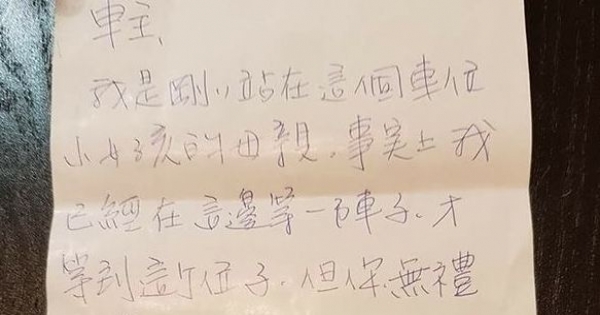 車主,
我是剛剛站在這個車位
小女孩的母親,事実上我
已經在這邊等一陣子,才
等到這个位子,但你無禮